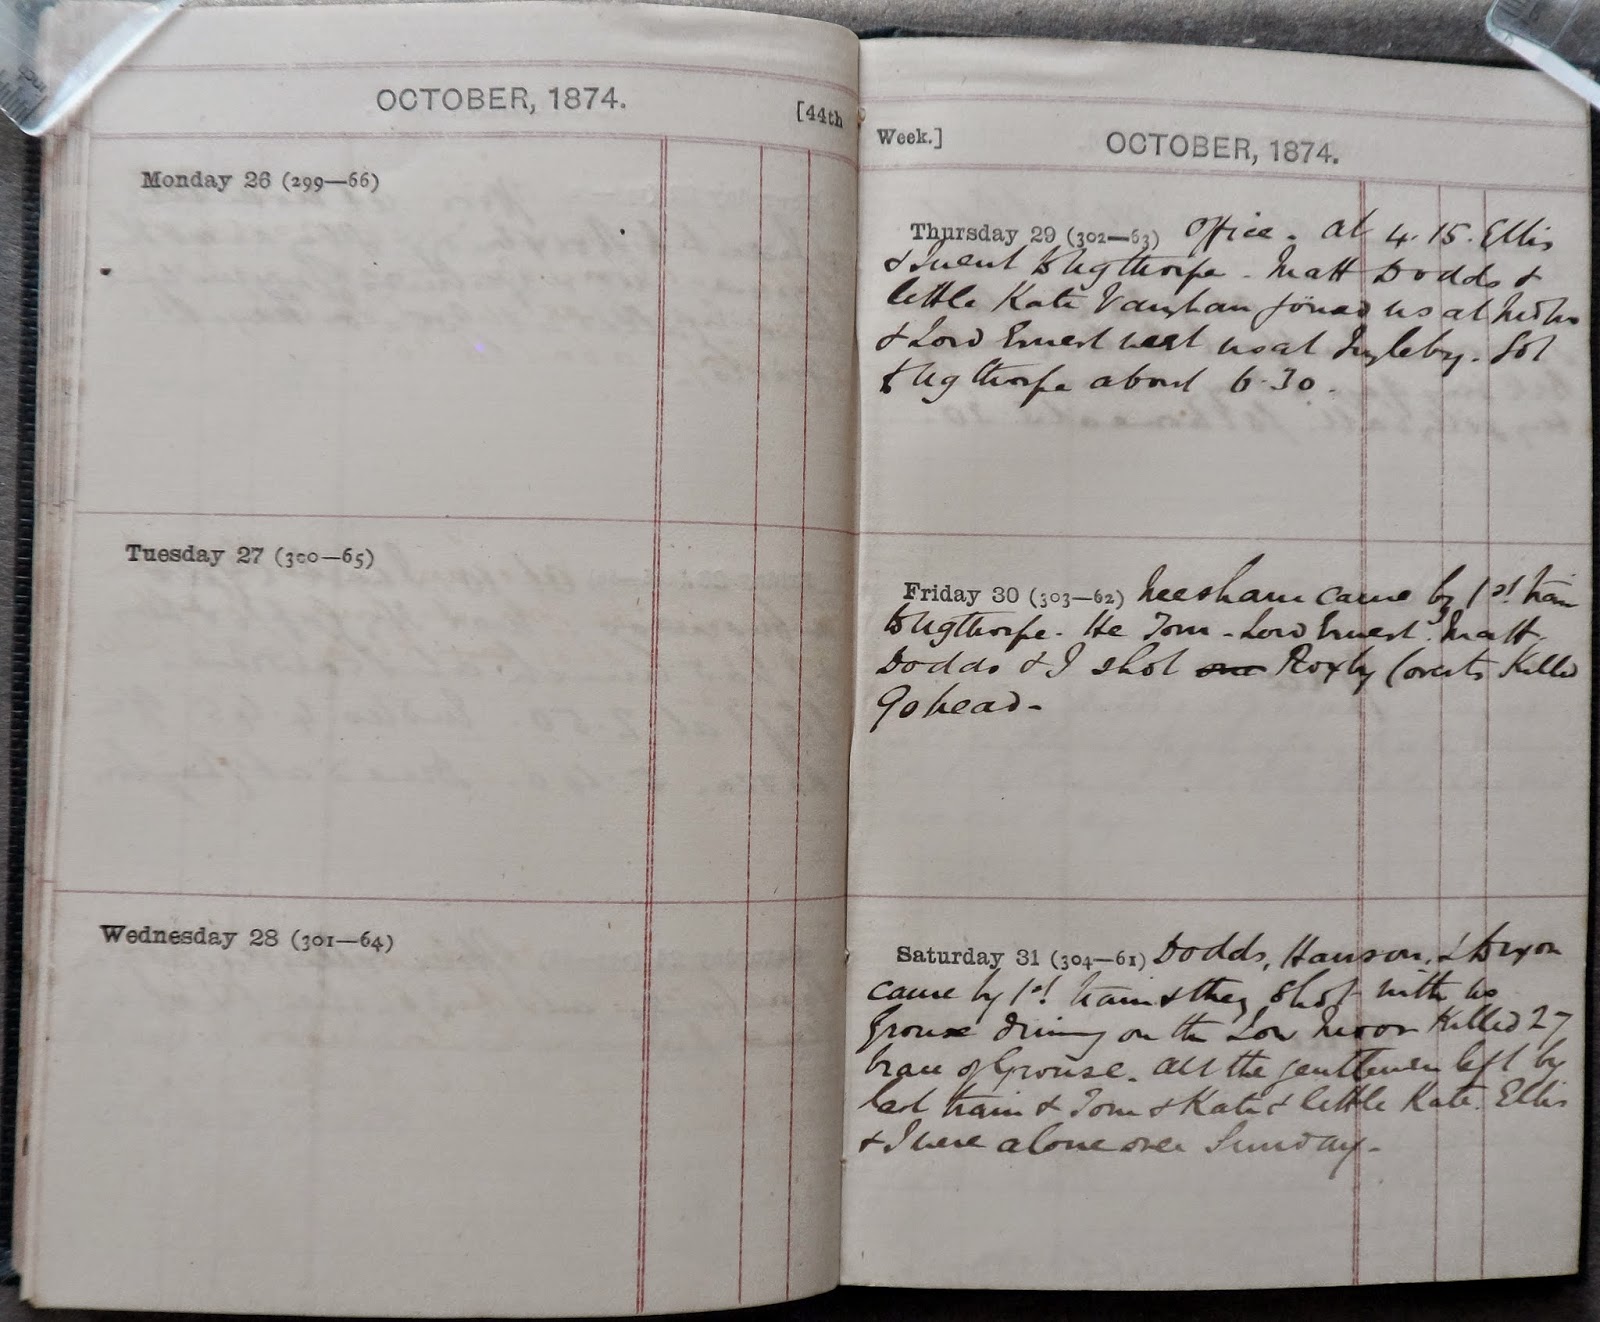 OCTOBER, 1874.
[44th
Monday 26 (299—66)
Tuesday 27 (300—65)
Wednesday 28 (301—64)
Week.]
OCTOBER, 1874.
Thursday 29 (302—63) Office. at 4.15. Ellis
& I went to Ugthorpe. Matt Dodds &
little Kate Vaughan joined us at
& Lord Ernest met us at Ingleby. Got
to Ugthorpe about 6.30.
Friday 30 (303—62) Neesham came by 1st train
to Ugthorpe. He Tom - Lord Ernest. Matt
Dodds & I shot Roxby Coverts Killed
90 head -
Saturday 31 (304—61) Dodds, Hanson, &
came by 1st train & they shot with us
Grouse driving on the Low Moor Killed 27
brace of Grouse. All the gentlemen left by
last train & Tom & Kate & little Kate. Ellis
& I were alone over Sunday -